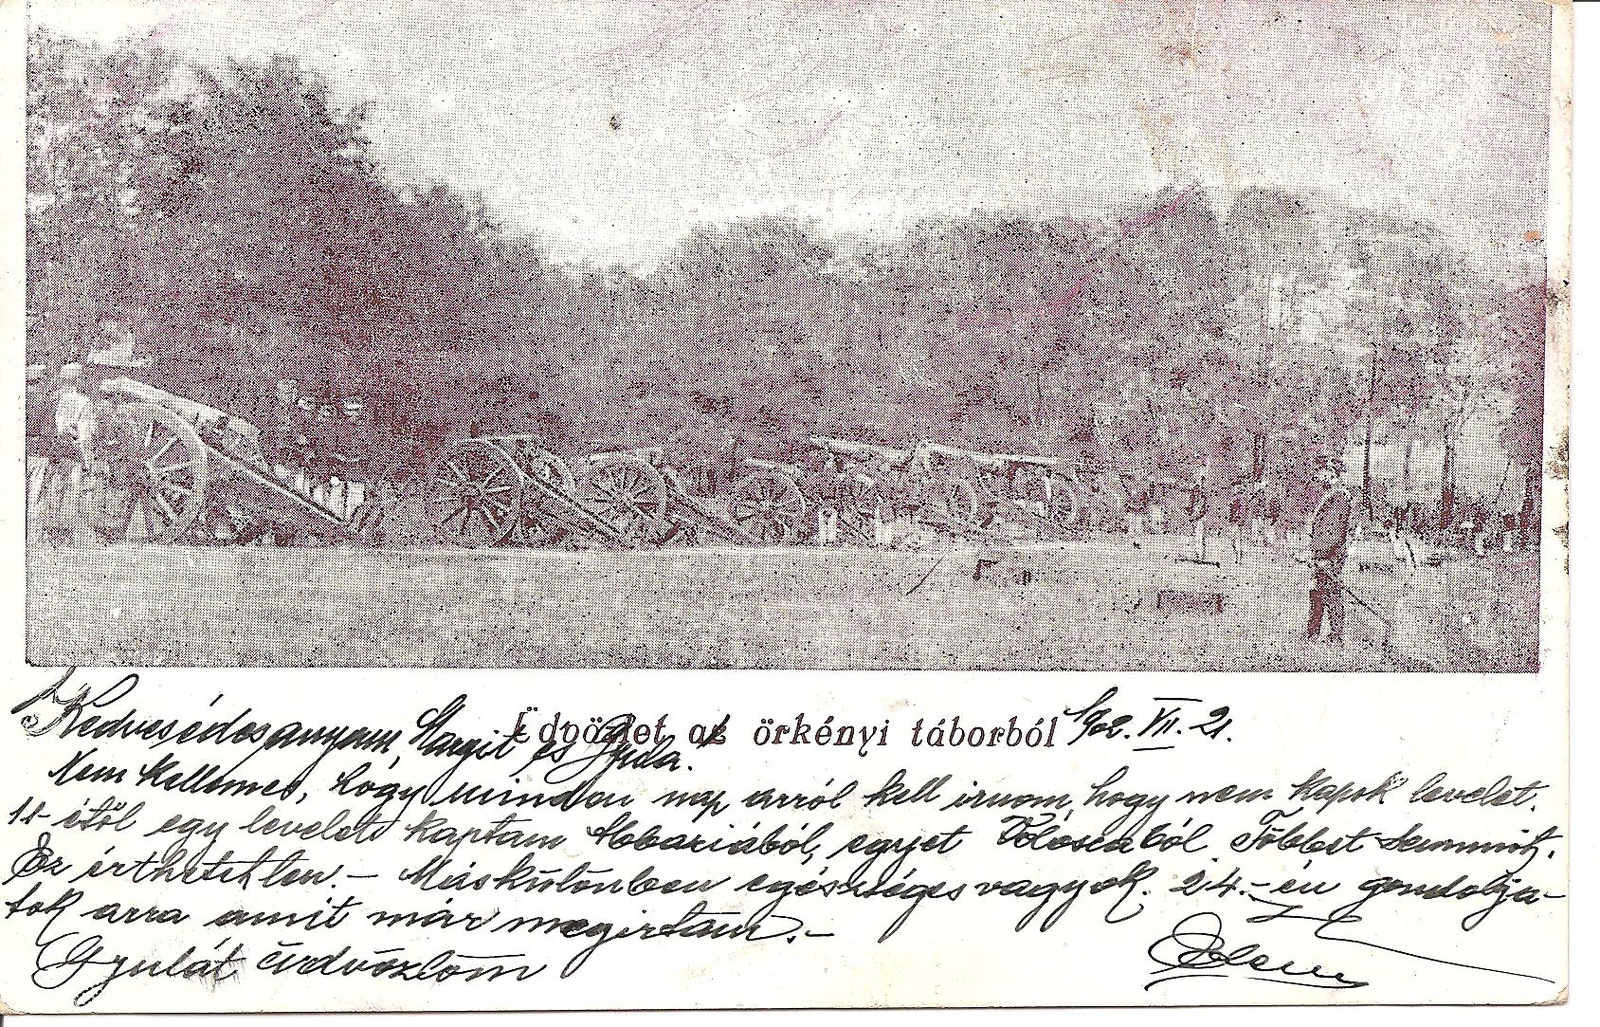 Üdvözlet az örkényi táborból 1902. VII. 21.
Kedves édesanyám, Margit és Gyula.
Nem kellemes, hogy minden nap arról kell irnom, hogy nem kapok levelet.
11-étől egy levelet kaptam Abbaziából, egyet Volosca ból Többet semmit.
Ez érthetetlen. – Máskülönben egészséges vagyok. 24.-én gondolja-
tok arra amit már megirtam. –
Gyulát üdvözlöm